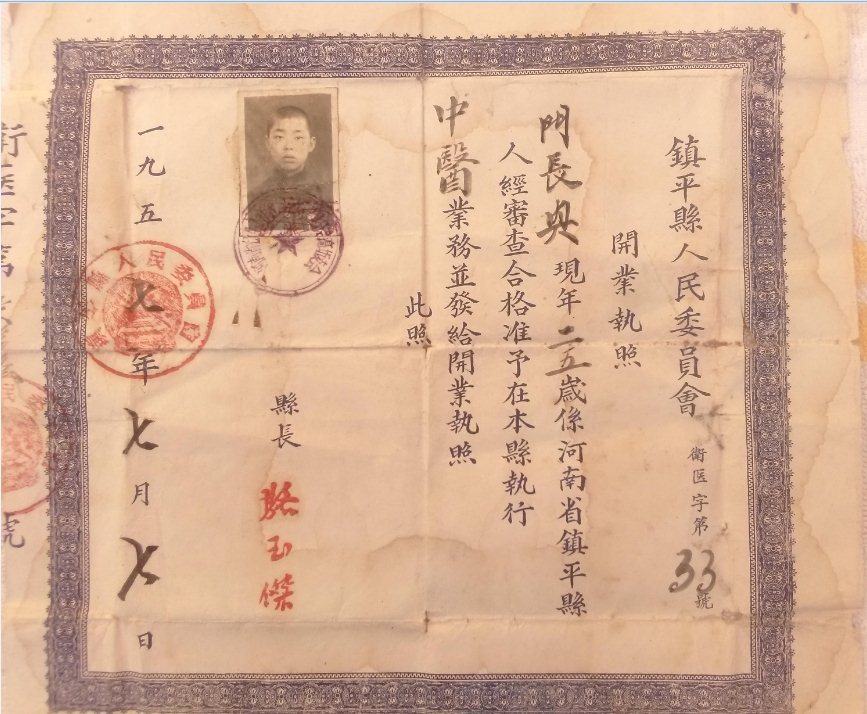 鎮平縣人民委員會
開業執照
衛医字第33號
門長典現年二五歲係河南省鎮平縣
人經審查合格准予在本縣執行
中醫業務並發給開業執照
此照
縣長
玉傑
一九五七年七月七日
人民委員會
號